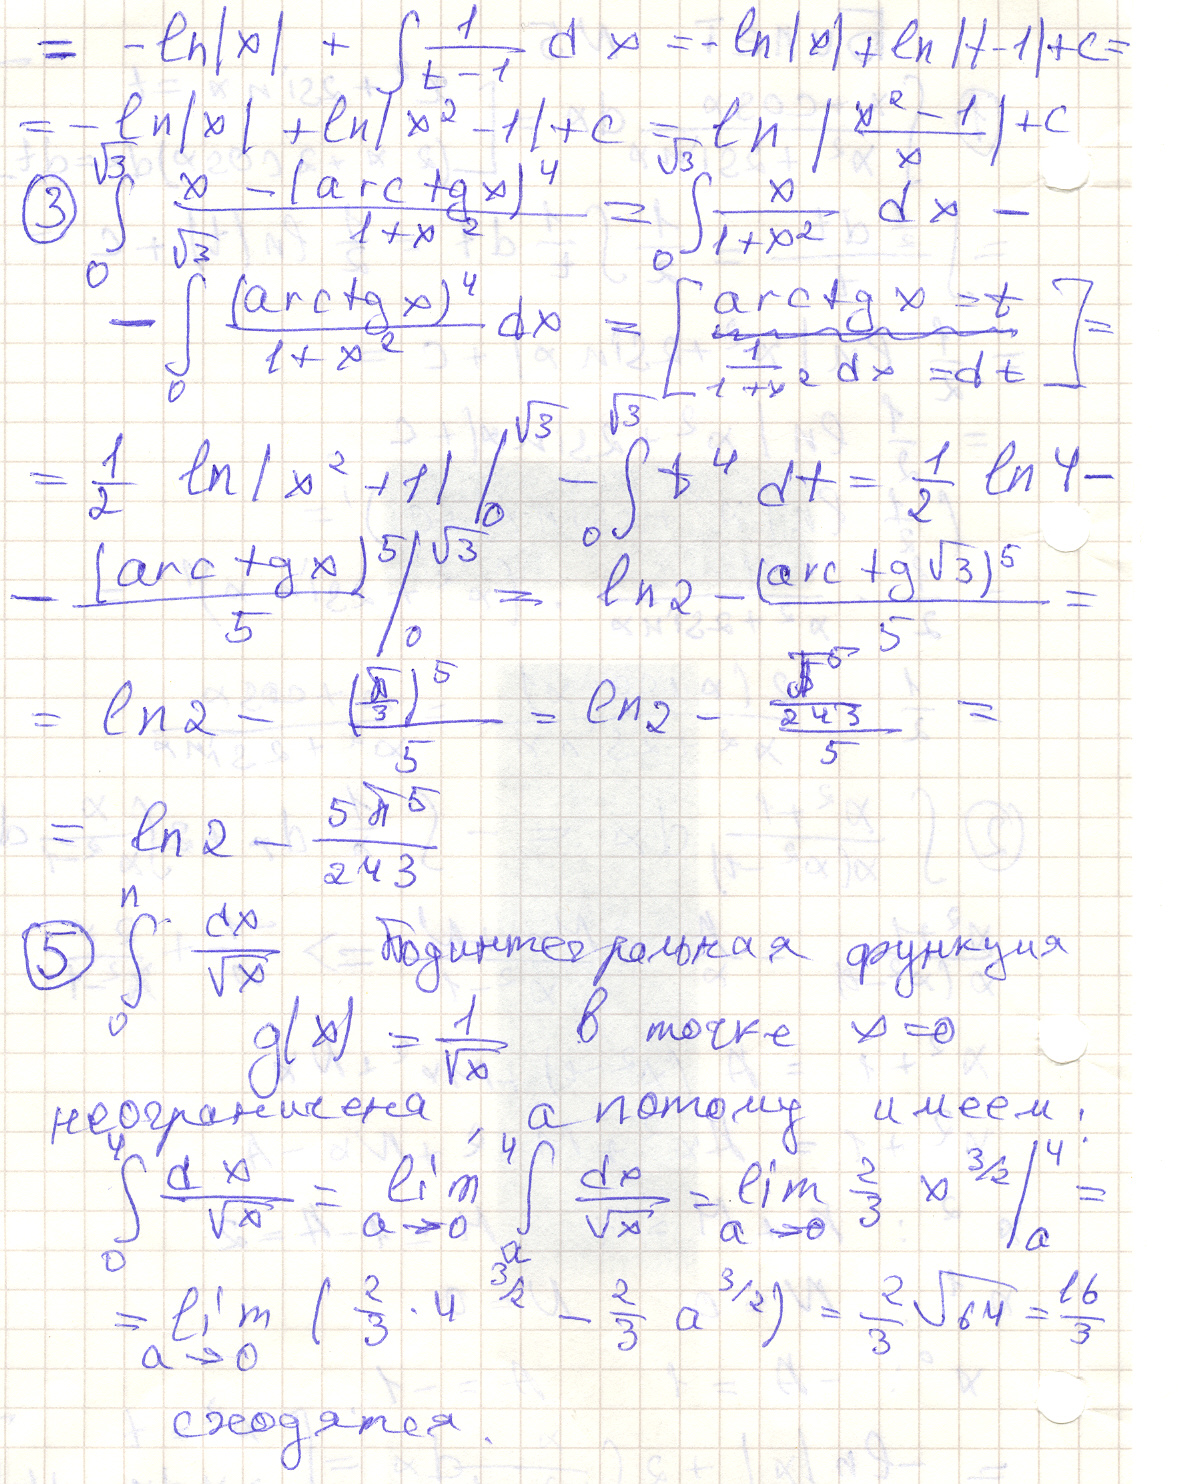 = -ln|x| + ∫ 1/(t-1) dx = -ln|x| + ln|t-1| + c =
= -ln|x| + ln|x² - 1| + c = ln |(x² - 1)/x| + c
③ ∫₀^√3 (x - (arctgx)⁴)/(1+x²) = ∫₀^√3 x/(1+x²) dx -
- ∫₀^√3 (arctgx)⁴/(1+x²) dx = [arctgx = t; 1/(1+x²) dx = dt] =
= 1/2 ln|x² + 1| |₀^√3 - ∫₀^√3 t⁴ dt = 1/2 ln4 -
- (arctgx)⁵/5 |₀^√3 = ln2 - (arctg√3)⁵/5 =
= ln2 - (π/3)⁵/5 = ln2 - (π⁵/243)/5 =
= ln2 - 5π⁵/243
⑤ ∫₀ⁿ dx/√x Подинтегральная функция
g(x) = 1/√x в точке x=0
неограничена, а потому имеем:
∫₀⁴ dx/√x = lim a→0 ∫ₐ⁴ dx/√x = lim a→0 2/3 x^3/2 |ₐ⁴ =
= lim a→0 (2/3 · 4^3/2 - 2/3 a^3/2) = 2/3 √64 = 16/3
сходятся.